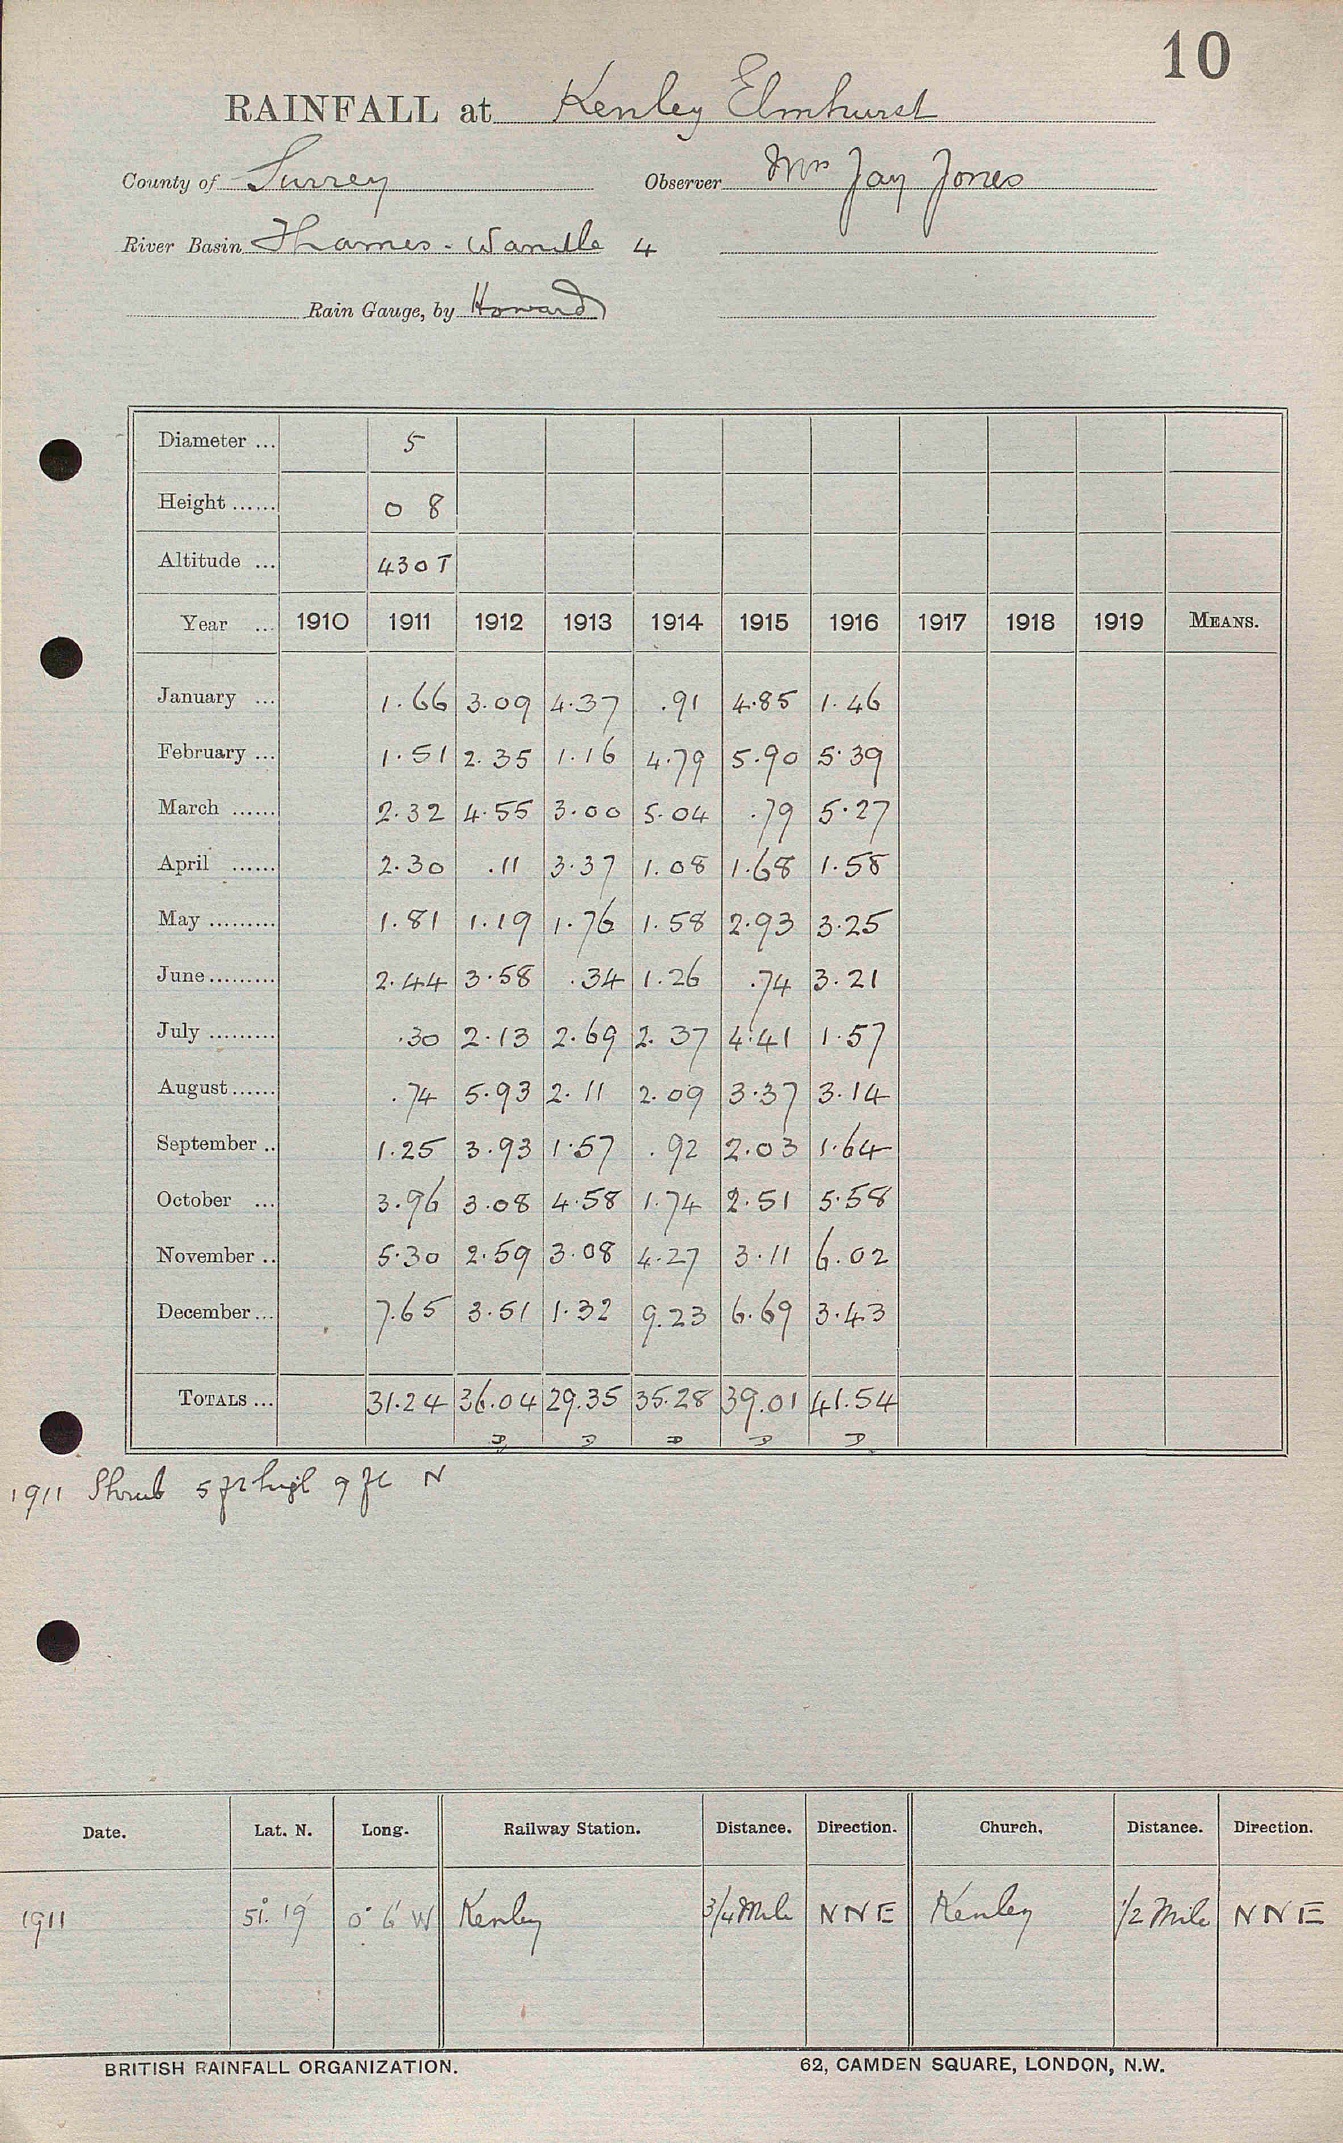 10
RAINFALL at Kenley Elmhurst
County of Surrey Observer Mrs Jay Jones
River Basin Thames - Wandle 4
Rain Gauge, by Howard
Diameter ... 5
Height ...... 0 8
Altitude ... 430 T
Year ... 1910 1911 1912 1913 1914 1915 1916 1917 1918 1919 MEANS.
January ... 1.66 3.09 4.37 .91 4.85 1.46
February ... 1.51 2.35 1.16 4.79 5.90 5.39
March ...... 2.32 4.55 3.00 5.04 .79 5.27
April ...... 2.30 .11 3.37 1.08 1.68 1.58
May ......... 1.81 1.19 1.76 1.58 2.93 3.25
June ......... 2.44 3.58 .34 1.26 .74 3.21
July ......... .30 2.13 2.69 2.37 4.41 1.57
August ...... .74 5.93 2.11 2.09 3.37 3.14
September .. 1.25 3.93 1.57 .92 2.03 1.64
October ... 3.96 3.08 4.58 1.74 2.51 5.58
November .. 5.30 2.59 3.08 4.27 3.11 6.02
December ... 7.65 3.51 1.32 9.23 6.69 3.43
TOTALS ... 31.24 36.04 29.35 35.28 39.01 41.54
D D D D D
1911 Shrub 5 ft high 9 ft N
Date. Lat. N. Long. Railway Station. Distance. Direction. Church. Distance. Direction.
1911 51° 19' 0° 6' W Kenley 3/4 Mile NNE Kenley 1/2 Mile NNE
BRITISH RAINFALL ORGANIZATION. 62, CAMDEN SQUARE, LONDON, N.W.